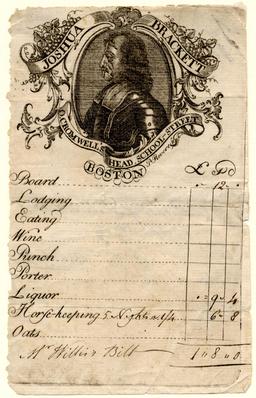 JOSHUA BRACKETT
O. CROMWELL'S HEAD SCHOOL-STREET
BOSTON
£ s d
Board 12
Lodging
Eating
Wine
Punch
Porter
Liquor 9 4
Horse-keeping 5 Nights 6 8
Oats
Mr Willis's Bill 1 8 0